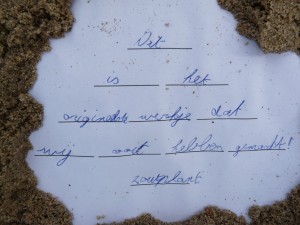 Dit
is het
originelste werkje dat
wij ooit hebben gemaakt!
zoutplant